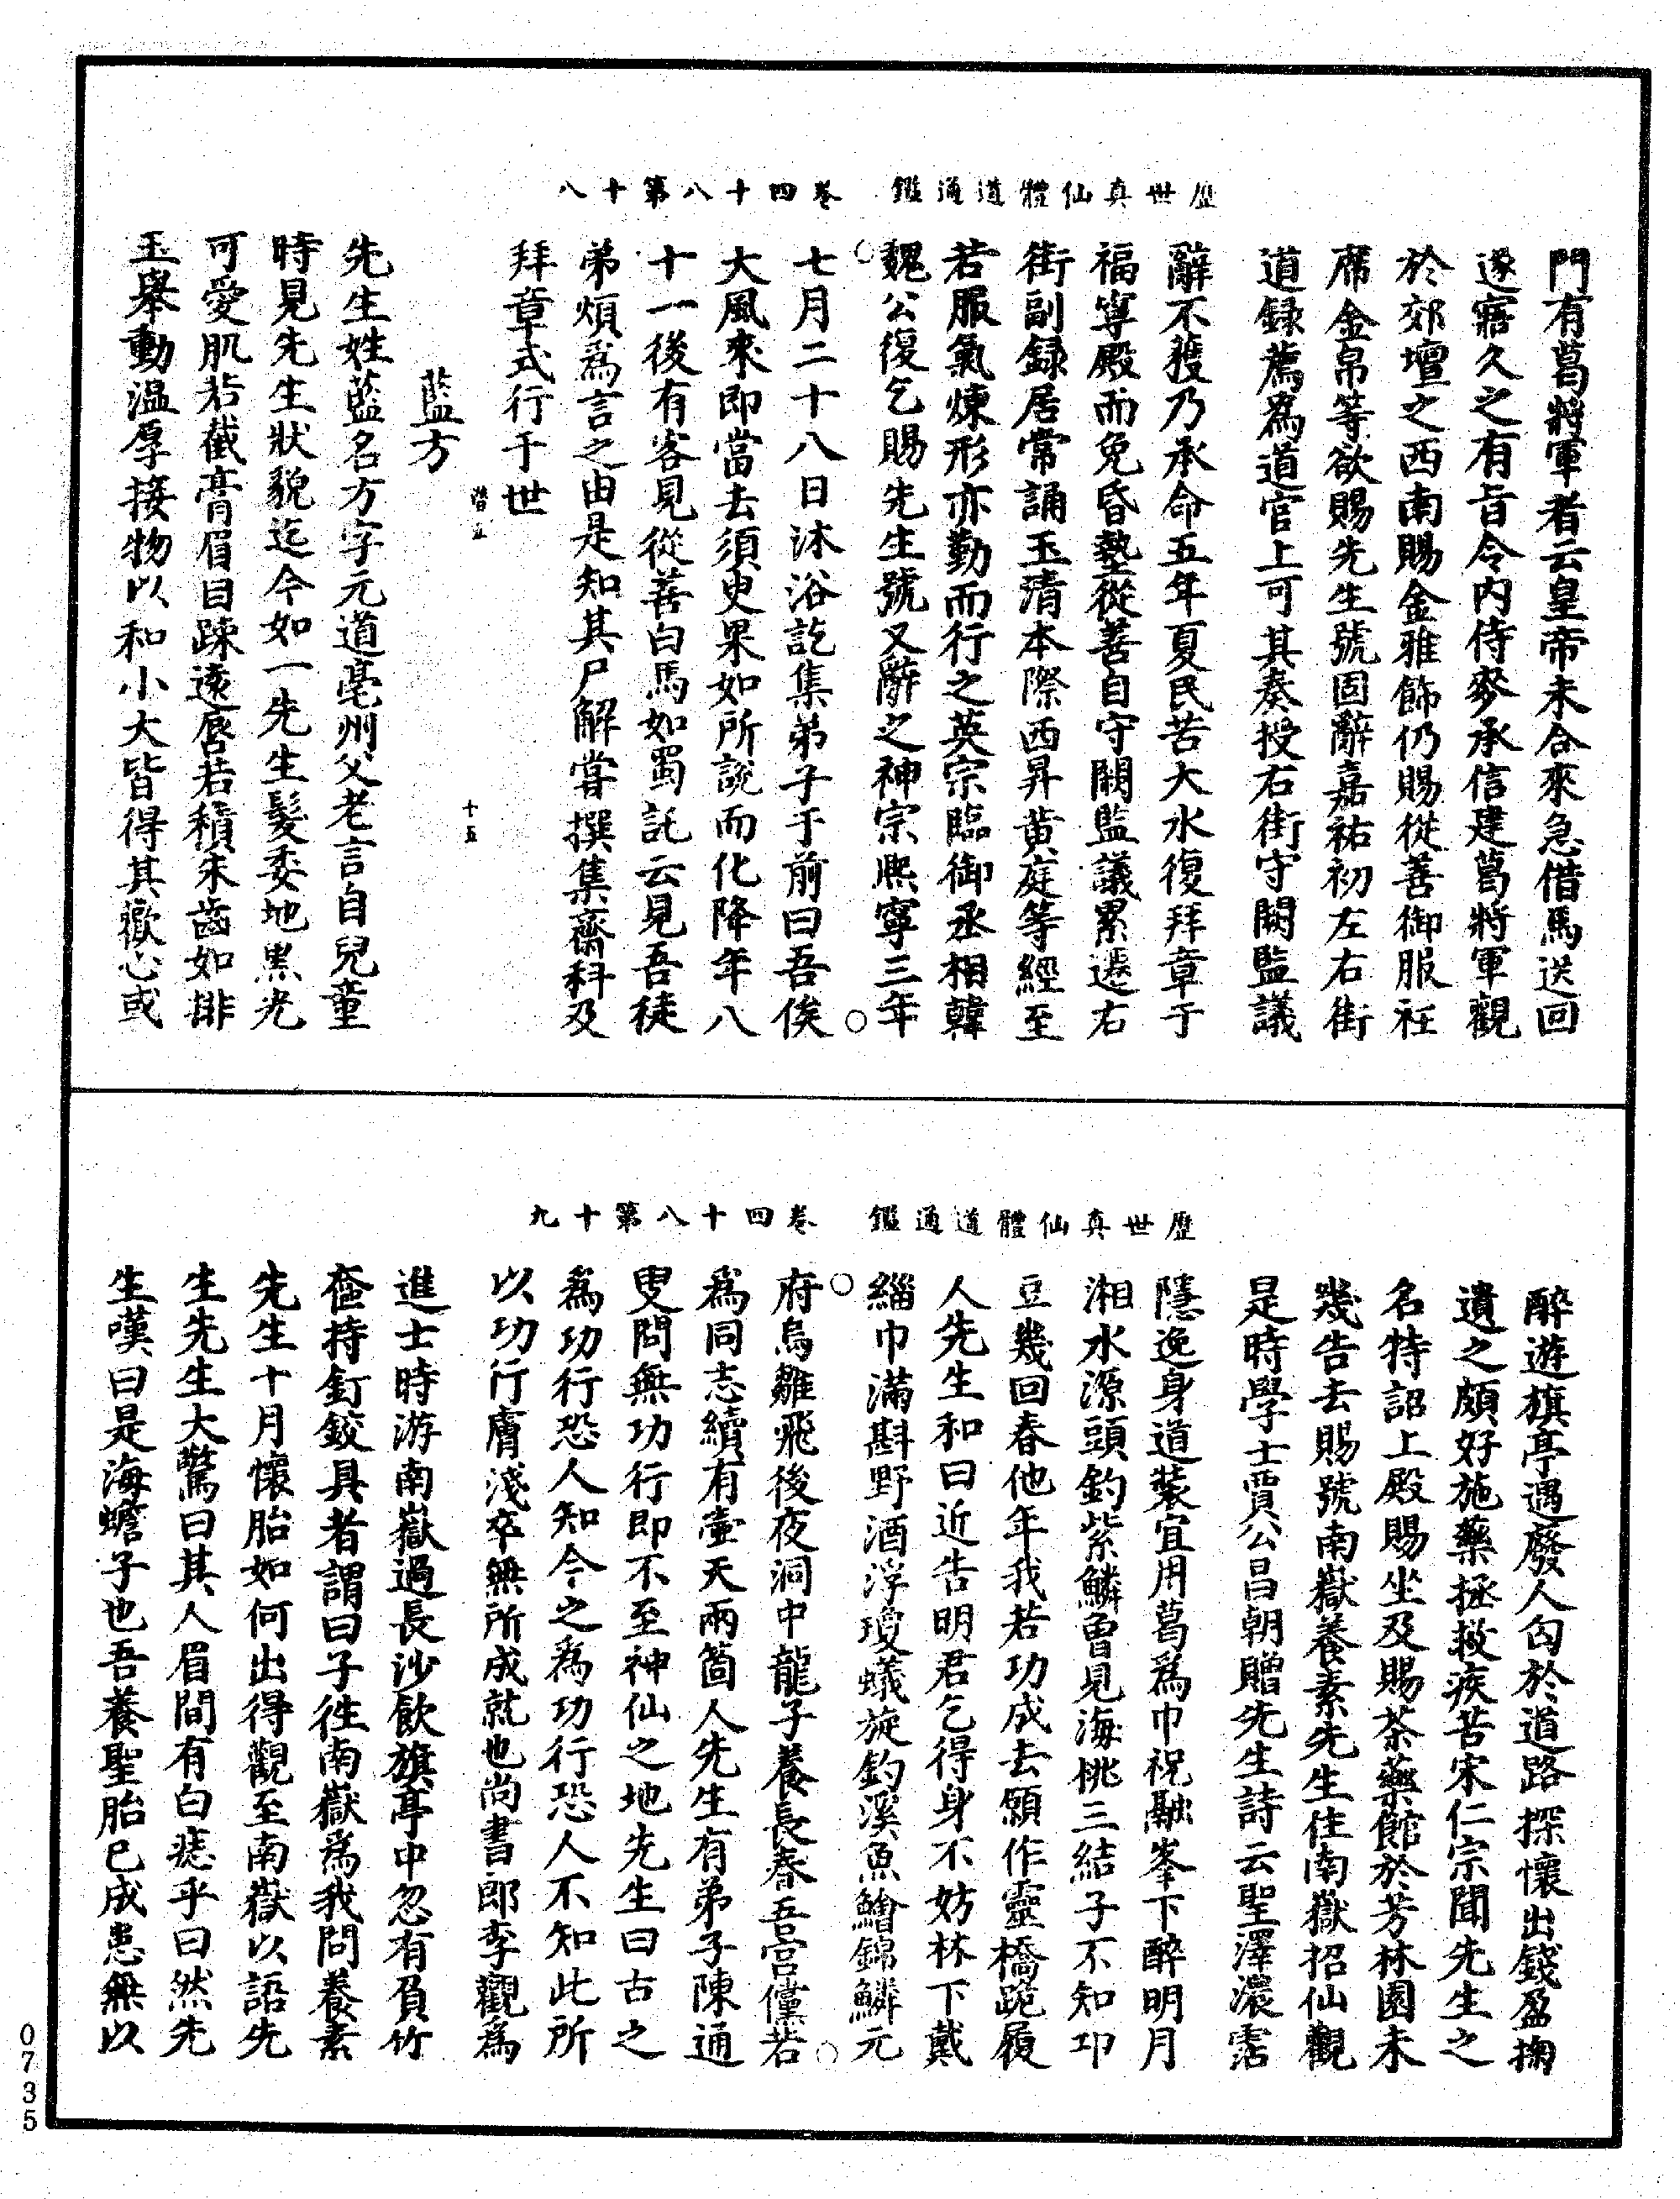 歷世真仙體道通鑑　卷四十八第十八
門有葛將軍者云皇帝未合來急借馬送回
遂寤久之有旨令内侍麥承信建葛將軍觀
於郊壇之西南賜金雅飾仍賜從善御服衽
席金帛等欲賜先生號固辭嘉祐初左右街
道録薦為道官上可其奏授右街守闕監議
辭不獲乃承命五年夏民苦大水復拜章于
福寧殿而免昏墊從善自守闕監議累遷右
街副録居常誦玉清本際西昇黄庭等經至
若服氣煉形亦勤而行之英宗臨御丞相韓
魏公復乞賜先生號又辭之神宗熙寧三年
七月二十八日沐浴訖集弟子于前曰吾俟
大風來即當去須臾果如所說而化降年八
十一後有客見從善白馬如蜀託云見吾徒
弟煩爲言之由是知其尸解嘗撰集齋科及
拜章式行于世
十五
藍方
先生姓藍名方字元道亳州父老言自兒童
時見先生狀貌迄今如一先生髮委地黑光
可愛肌若截膏眉目踈遠唇若積朱齒如排
玉舉動温厚接物以和小大皆得其歡心或
歷世真仙體道通鑑　卷四十八第十九
醉遊旗亭遇廢人匃於道路探懷出錢盈掬
遺之頗好施藥拯救疾苦宋仁宗聞先生之
名特詔上殿賜坐及賜茶藥館於芳林園未
幾告去賜號南嶽養素先生住南嶽招仙觀
是時學士賈公昌朝贈先生詩云聖澤濃霑
隱逸身道裝宜用葛爲巾祝融峯下醉明月
湘水源頭釣紫鱗曾見海桃三結子不知卭
豆幾回春他年我若功成去願作靈橋跪履
人先生和曰近告明君乞得身不妨林下戴
緇巾滿斟野酒浮瓊蟻旋釣溪魚鱠錦鱗元
府烏雛飛後夜洞中龍子養長春吾宫儻若
爲同志續有壷天兩箇人先生有弟子陳通
叟問無功行即不至神仙之地先生曰古之
爲功行恐人知今之爲功行恐人不知此所
以功行膚淺卒無所成就也尚書郎李觀爲
進士時游南嶽過長沙飲旗亭中忽有負竹
奩持釘鉸具者謂曰子徃南嶽爲我問養素
先生十月懷胎如何出得觀至南嶽以語先
生先生大驚曰其人眉間有白痣乎曰然先
生嘆曰是海蟾子也吾養聖胎已成患無以
0735